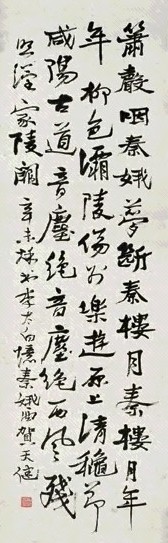 簫聲咽秦娥夢斷秦樓月秦樓月年
年柳色灞陵傷別樂遊原上清穐節
咸陽古道音塵絕音塵絕西風殘
照漢家陵闕辛未秋書李太白憶秦娥詞賀天健